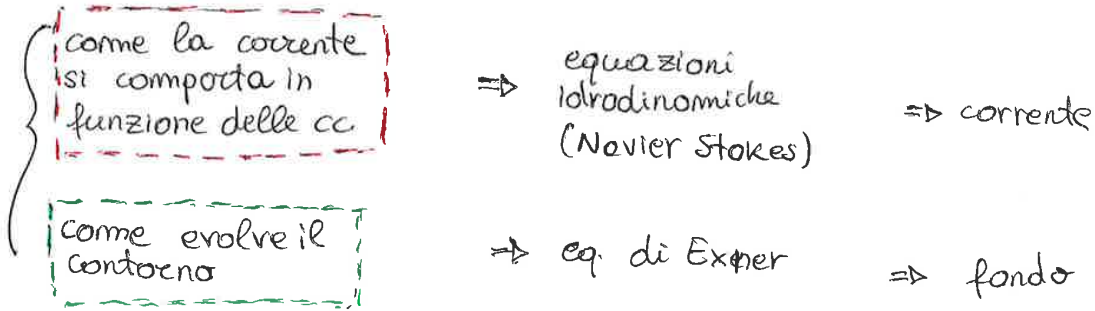 come la corrente
si comporta in
funzione delle cc.
=> equazioni
idrodinamiche
(Navier Stokes)
=> corrente
come evolve il
contorno
=> eq. di Exner
=> fondo